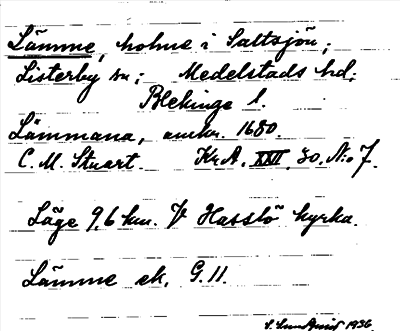 Lämme, holme i Saltsjön;
Listerby sn; Medelstads hd;
Blekinge l.
Lämmana, omkr. 1680.
C. M. Stuart. Kr.A. XXII, 30, No 7.
Läge 9,6 km. V Hasslö kyrka.
Lämme ek. G.11.
S. Lundquist 1936.